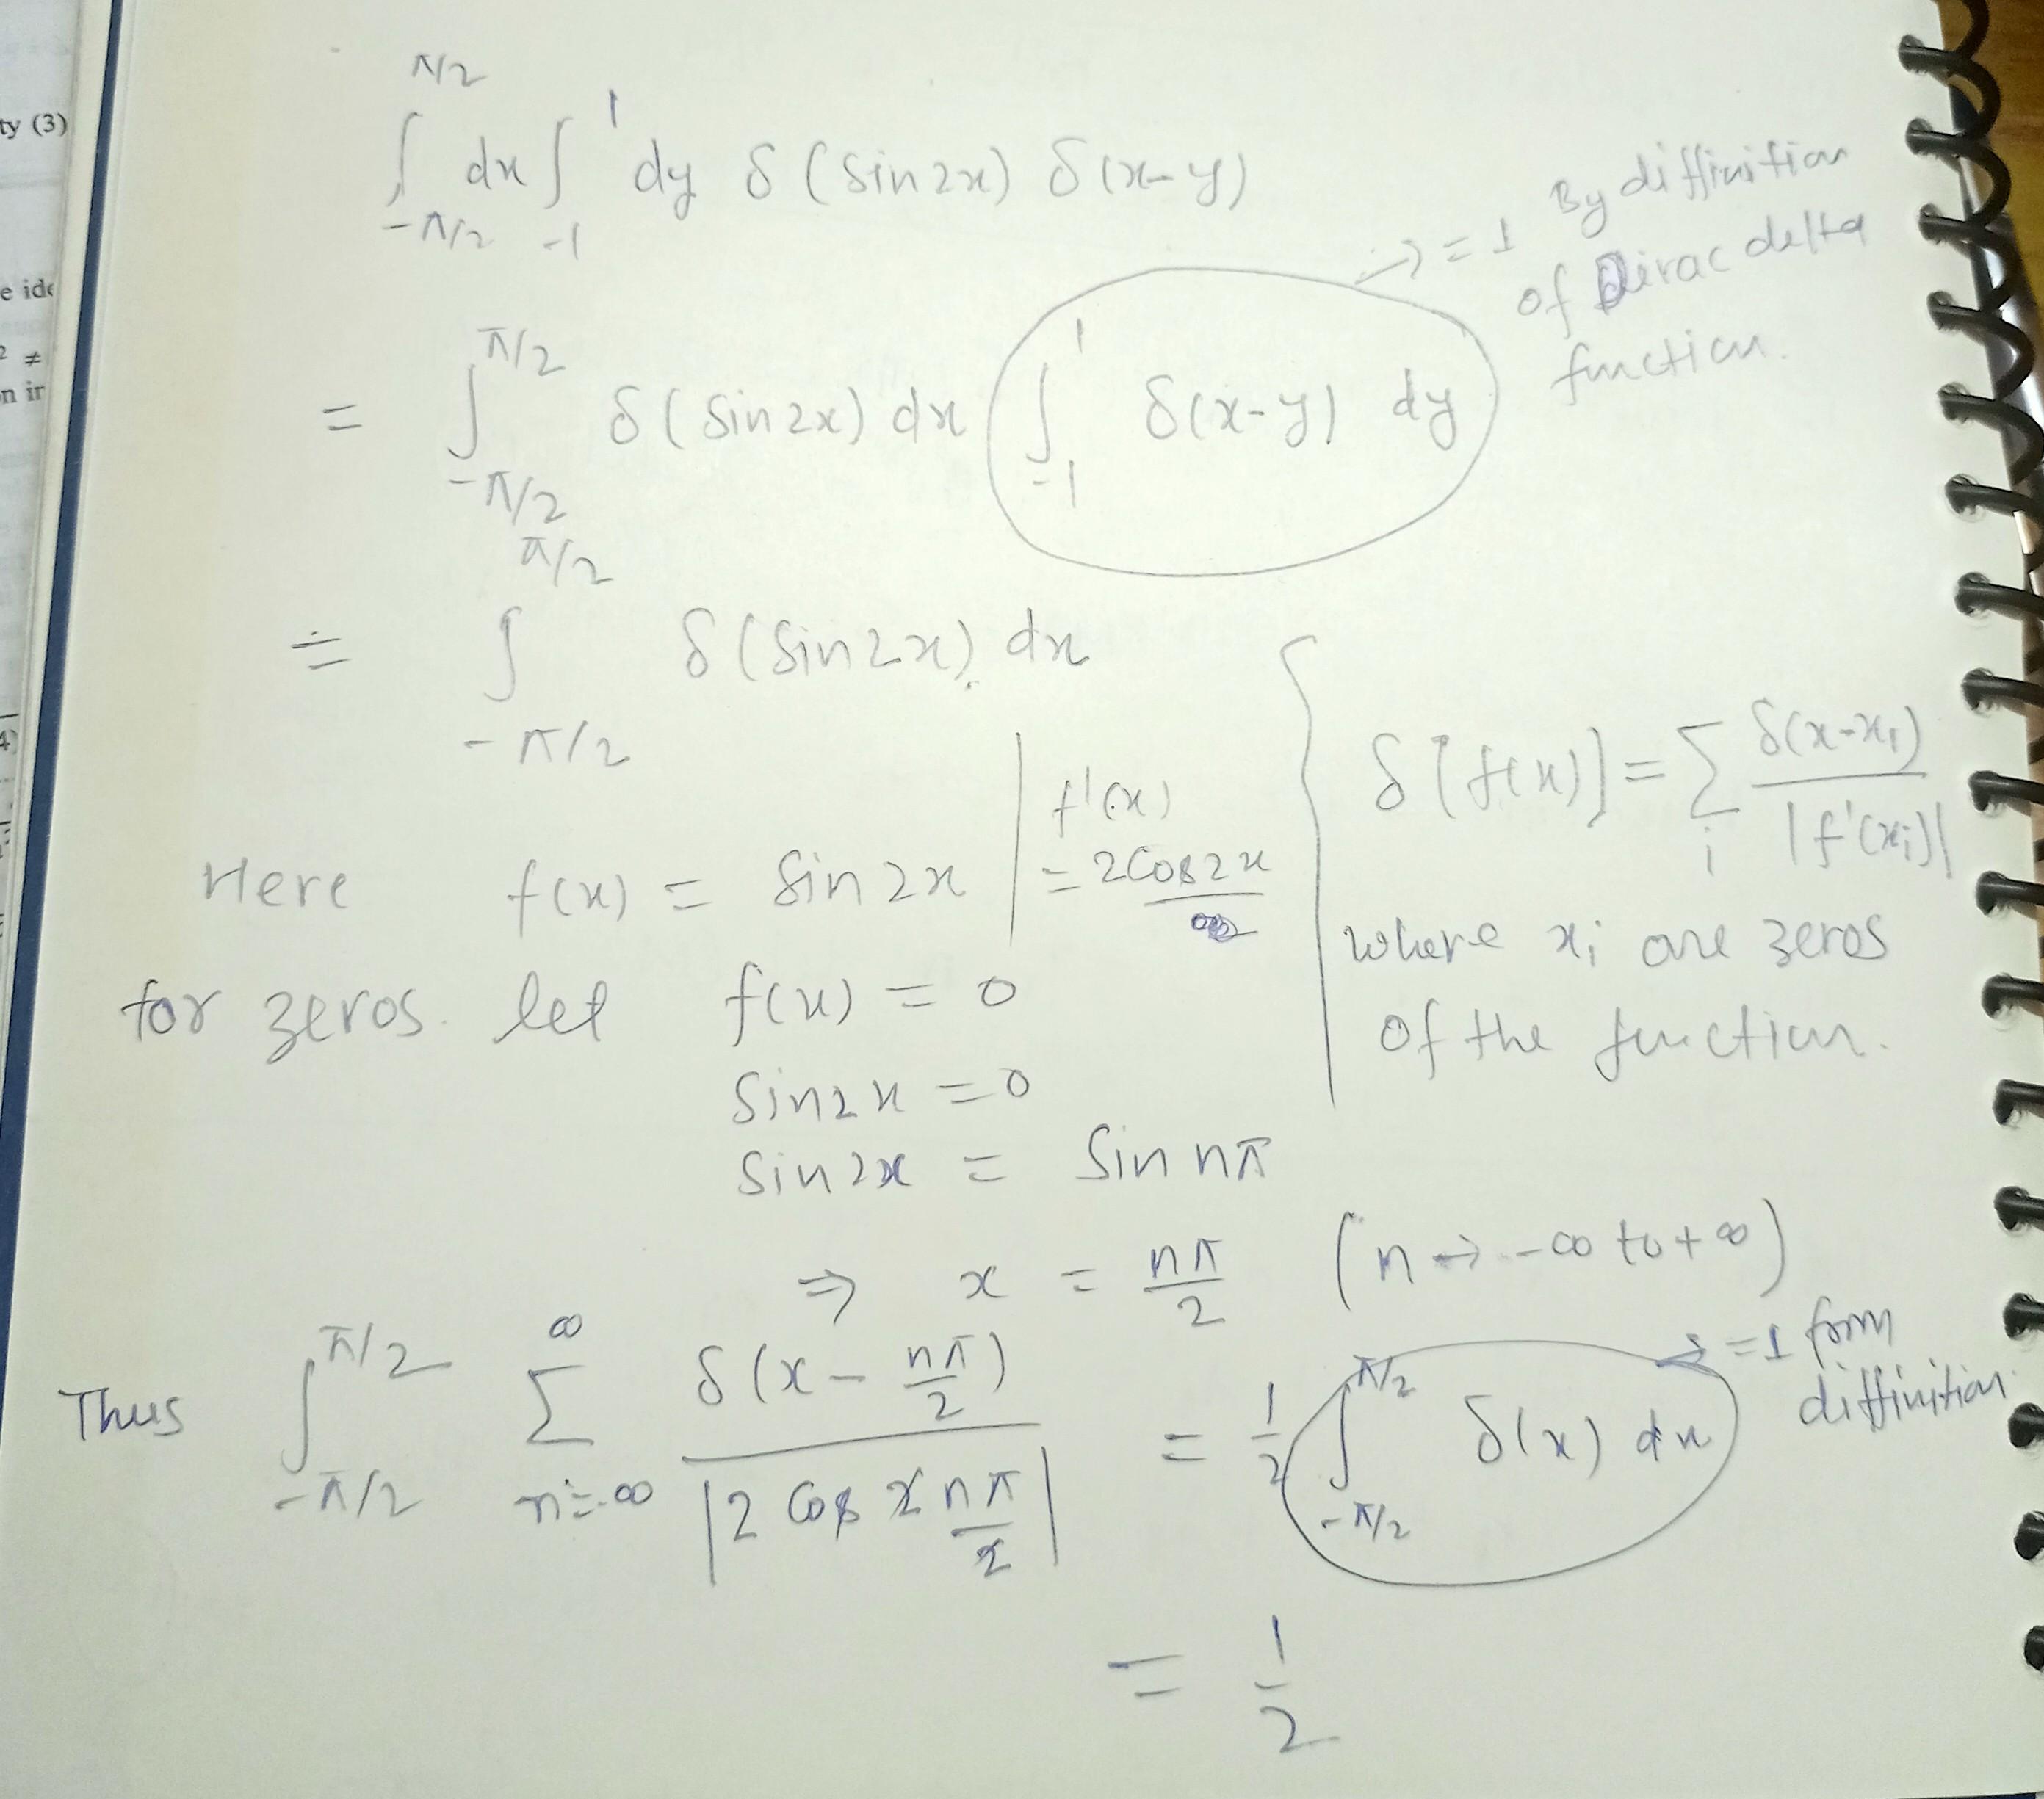 ty (3)
e ide
2 ≠
n in
4)
∫_{-π/2}^{π/2} dx ∫_{-1}^{1} dy δ(sin2x) δ(x-y)
= ∫_{-π/2}^{π/2} δ(sin2x) dx ∫_{-1}^{1} δ(x-y) dy
→ = 1 By diffinition
of Dirac delta
function.
= ∫_{-π/2}^{π/2} δ(sin2x) dx
δ[f(x)] = Σ_i δ(x-x_i)/|f'(x_i)|
where x_i are zeros
of the function.
Here f(x) = sin2x | f'(x) = 2cos2x
for zeros let f(x) = 0
sin2x = 0
sin2x = sin nπ
⇒ x = nπ/2 (n → -∞ to +∞)
Thus ∫_{-π/2}^{π/2} Σ_{n=-∞}^{∞} δ(x - nπ/2)/|2 cos 2 nπ/2| = 1/2 ∫_{-π/2}^{π/2} δ(x) dx
→ = 1 from
diffinition.
= 1/2